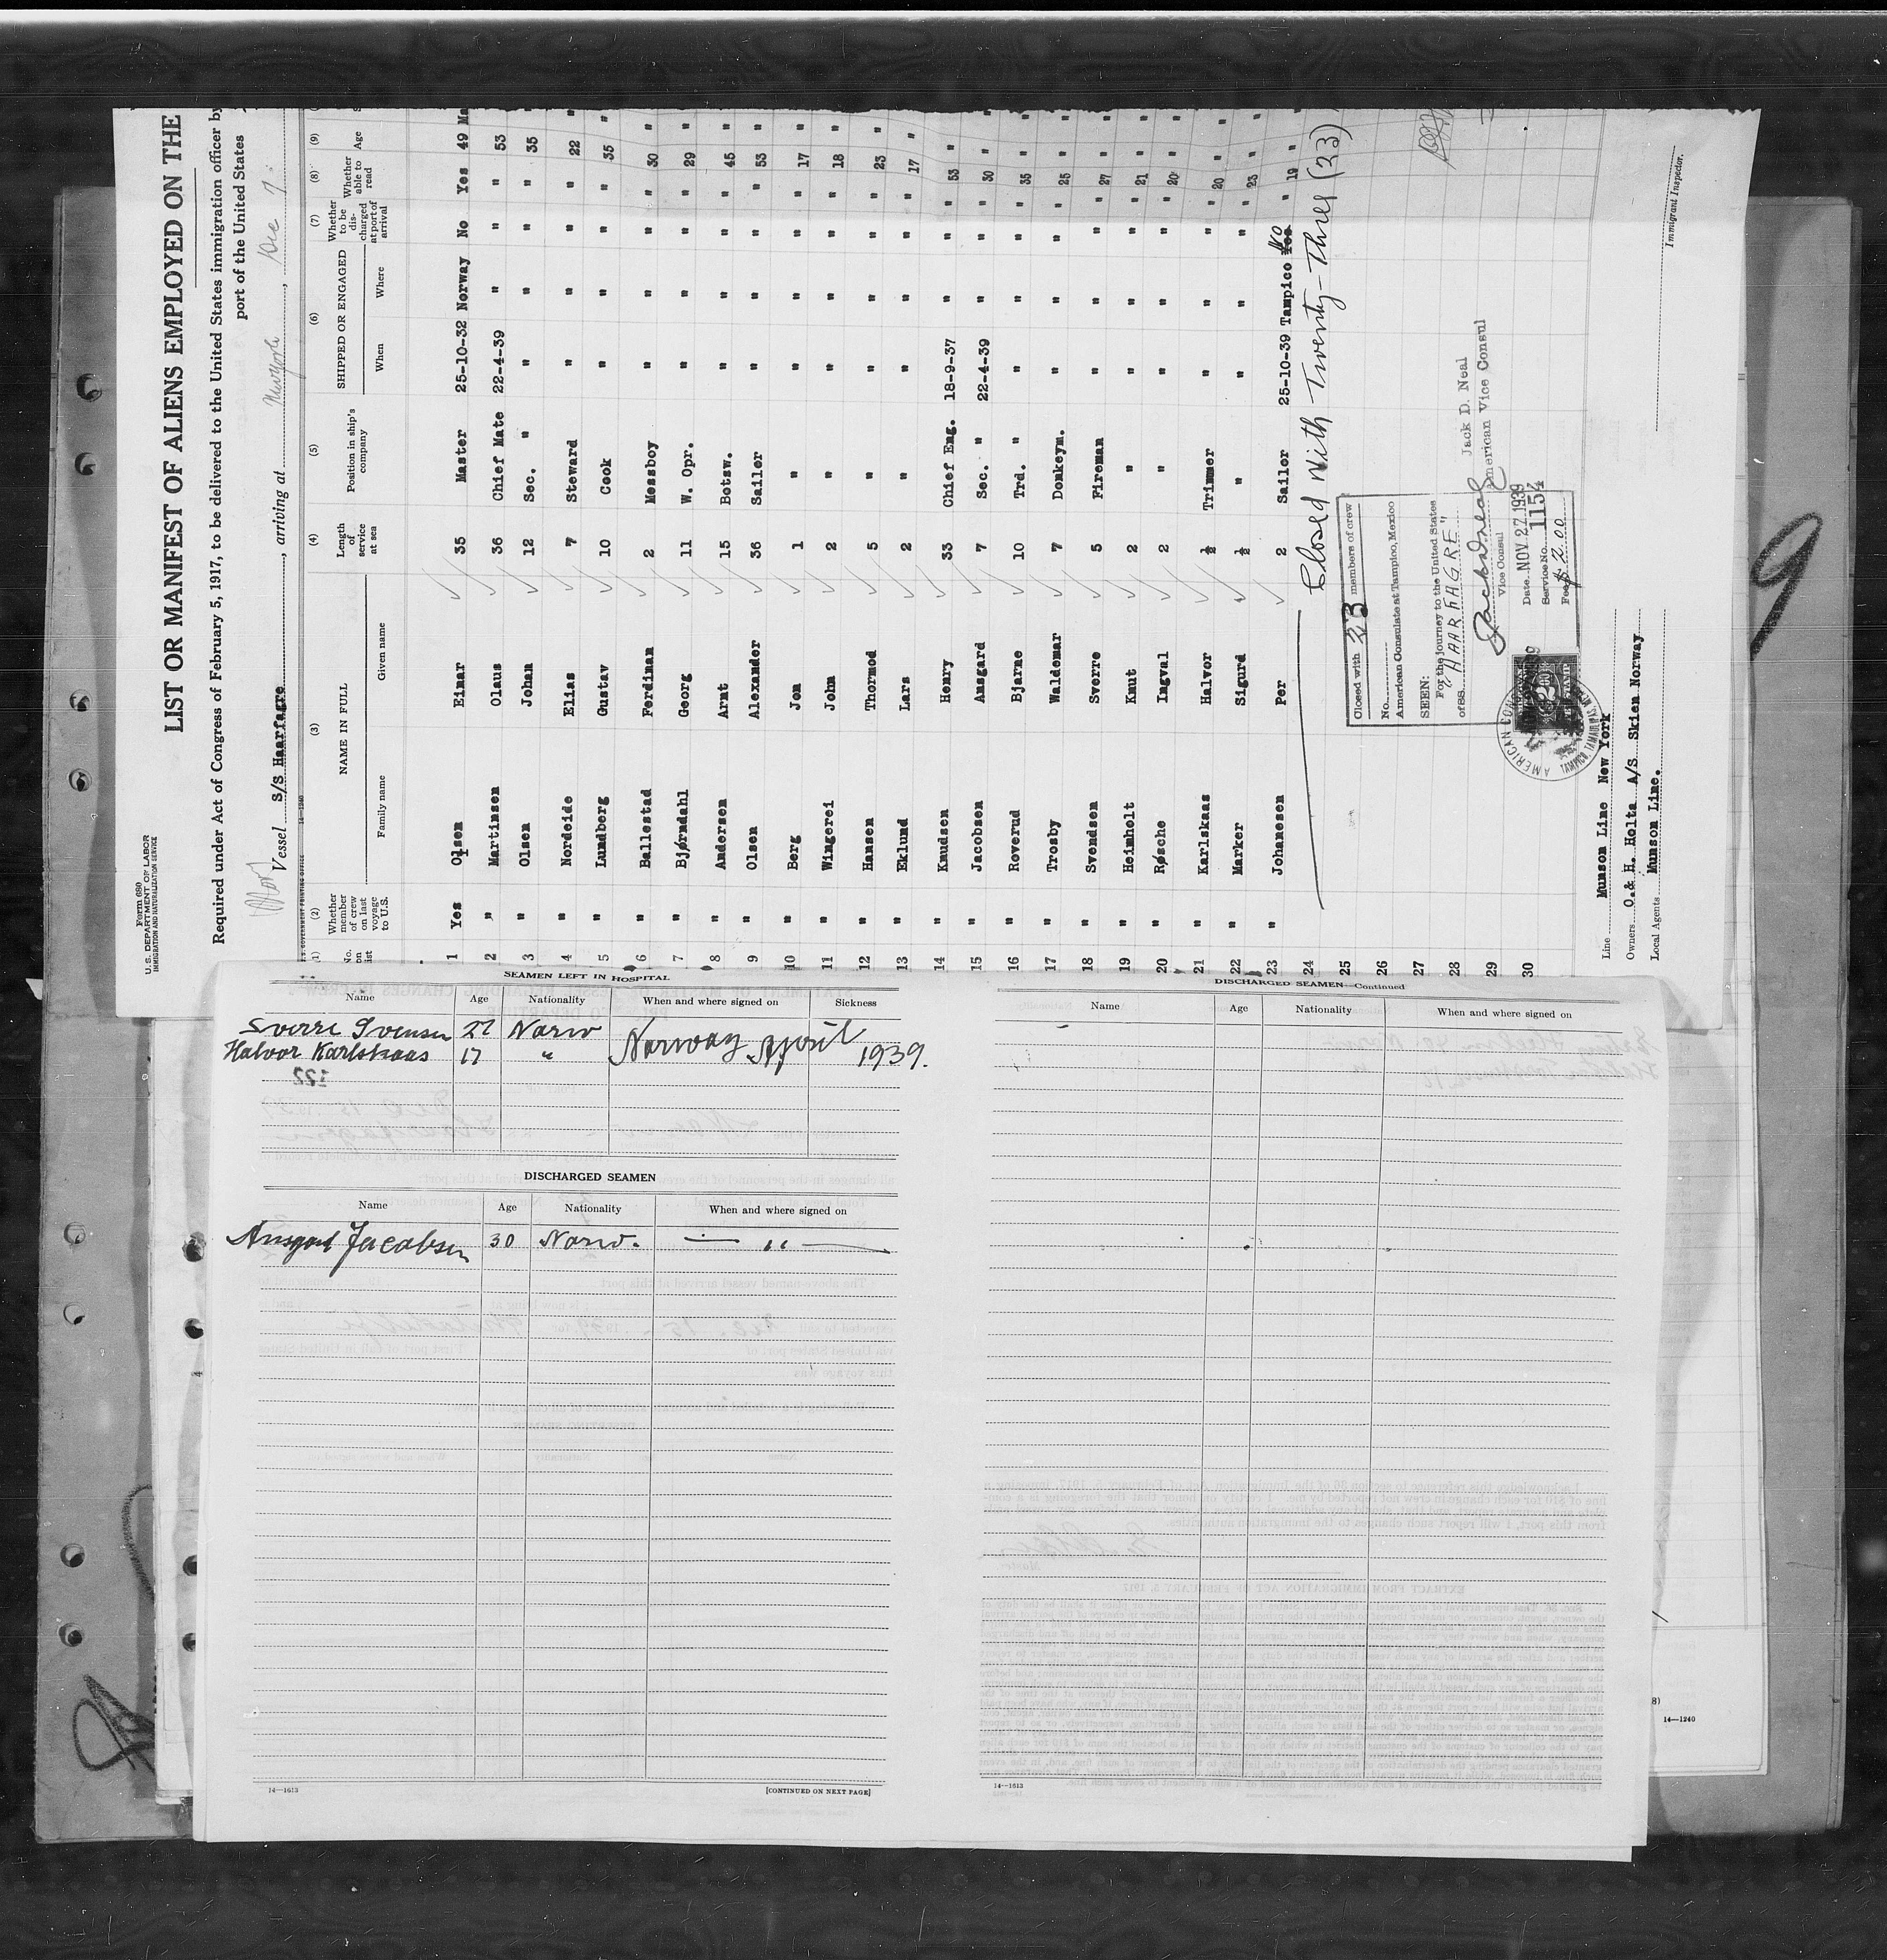 Form 680
U. S. DEPARTMENT OF LABOR
IMMIGRATION AND NATURALIZATION SERVICE
LIST OR MANIFEST OF ALIENS EMPLOYED ON THE
Required under Act of Congress of February 5, 1917, to be delivered to the United States immigration officer by
port of the United States
Vessel S/S Haarfagre, arriving at New York, Dec 7
U. S. GOVERNMENT PRINTING OFFICE 14—1240
(1) (2) (3) (4) (5) (6) (7) (8) (9)
No. on list Whether member of crew on last voyage to U.S. NAME IN FULL Family name Given name Length of service at sea Position in ship's company SHIPPED OR ENGAGED When Where Whether to be discharged at port of arrival Whether able to read Age
1 Yes Olsen Einar 35 Master 25-10-32 Norway No Yes 49 Ma
2 " Martinsen Olaus 36 Chief Mate 22-4-39 " " " 53
3 " Olsen Johan 12 Sec. " " " " " 35 "
4 " Nordeide Elias 7 Steward " " " " 22 "
5 " Lundberg Gustav 10 Cook " " " " 35 "
6 " Ballestad Ferdinan 2 Messboy " " " " 30 "
7 " Bjørndahl Georg 11 W. Opr. " " " " 29 "
8 " Andersen Arnt 15 Botsw. " " " " 45 "
9 " Olsen Alexander 36 Sailor " " " " 53 "
10 " Berg Jon 1 " " " " " 17 "
11 " Wingerei John 2 " " " " " 18 "
12 " Hansen Thormod 5 " " " " " 23 "
13 " Eklund Lars 2 " " " " " 17 "
14 " Knudsen Henry 33 Chief Eng. 18-9-37 " " " 53 "
15 " Jacobsen Ansgard 7 Sec. " 22-4-39 " " " 30 "
16 " Roverud Bjarne 10 Trd. " " " " " 35 "
17 " Trosby Waldemar 7 Donkeym. " " " " 25 "
18 " Svendsen Sverre 5 Fireman " " " " 27 "
19 " Heimholt Knut 2 " " " " " 21 "
20 " Røsche Ingval 2 " " " " " 20 "
21 " Karlskaas Halvor ½ Trimmer " " " " 20 "
22 " Marker Sigurd ½ " " " " " 23 "
23 " Johanesen Per 2 Sailor 25-10-39 Tampico Yes No " 19 "
24
25
26
27
28
29
30
Closed With Twenty-Three (23)
Closed with 23 members of crew
No.
American Consulate at Tampico, Mexico
SEEN:
For the journey to the United States
of SS. "HAARFAGRE"
Jack D Neal
Vice Consul
Jack D. Neal
American Vice Consul
Date NOV 27 1939
Service No. 1154
Fee $2.00
AMERICAN CONSULATE
TAMPICO, TAMAULIPAS, MEXICO
Line Munson Line New York
Owners O. & H. Holta A/S. Skien Norway
Local Agents Munson Line.
Immigrant Inspector.
9
SEAMEN LEFT IN HOSPITAL
Name Age Nationality When and where signed on Sickness
Sverre Svensen 27 Norw Norway April 1939.
Halvor Karlskaas 17 "
DISCHARGED SEAMEN
Name Age Nationality When and where signed on
Ansgard Jacobsen 30 Norw. — " —
14—1613
[CONTINUED ON NEXT PAGE]
DISCHARGED SEAMEN—Continued
Name Age Nationality When and where signed on
14—1613
8)
14—1240